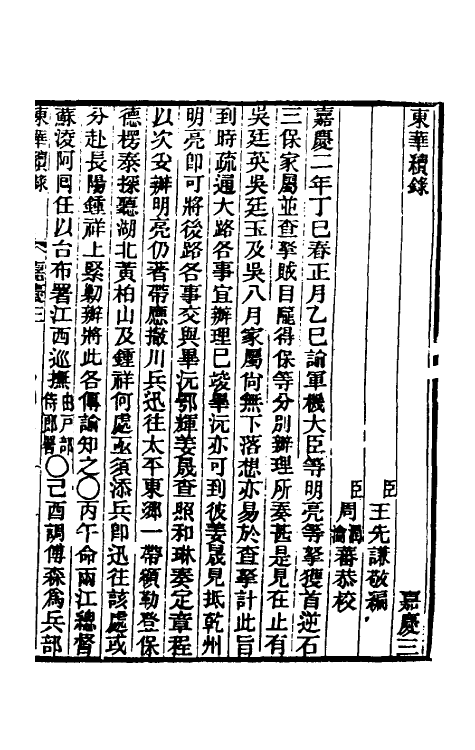 東華續錄 嘉慶三
臣王先謙敬編
臣周潤蕃瀹蕃恭校
嘉慶二年丁巳春正月乙巳諭軍機大臣等明亮等拏獲首逆石
三保家屬並查拏賊目龍得保等分別辦理所奏甚是見在止有
吳廷英吳廷玉及吳八月家屬尙無下落想亦易於查拏計此旨
到時疏通大路各事宜辦理已竣畢沅亦可到彼姜晟見抵乾州
明亮卽可將後路各事交與畢沅鄂輝姜晟查照和琳奏定章程
以次妥辦明亮仍著帶應撤川兵迅往太平東鄉一帶額勒登保
德楞泰探聽湖北黃柏山及鍾祥何處亟須添兵卽迅往該處或
分赴長陽鍾祥上緊勦辦將此各傳諭知之〇丙午命兩江總督
蘇淩阿囘任以台布署江西巡撫由戶部侍郎署〇己酉調傅森爲兵部
東華續錄 嘉慶三